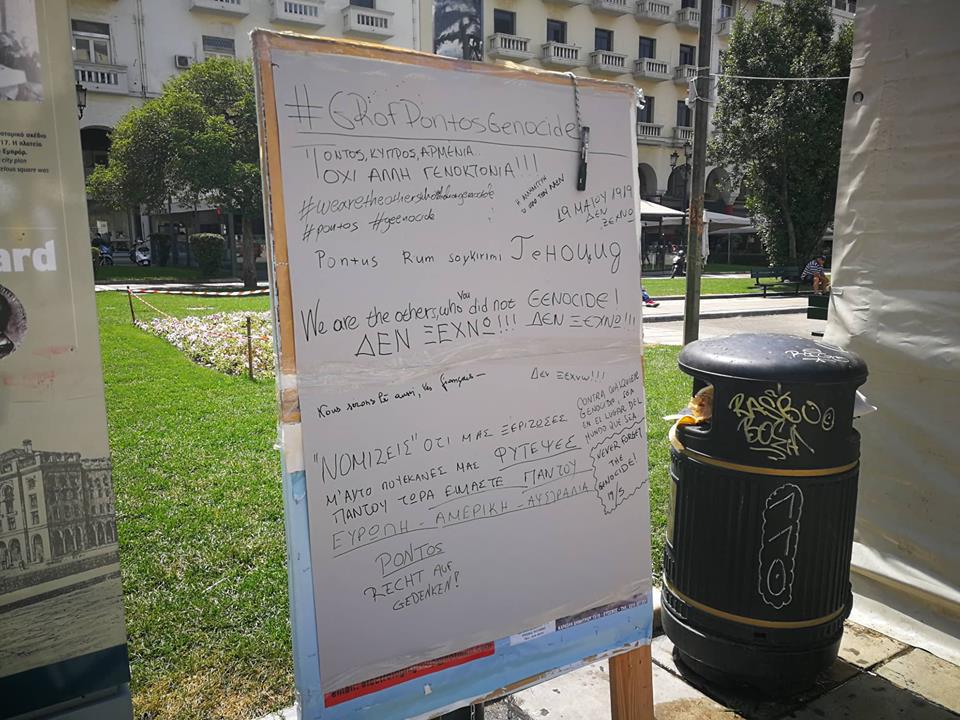 #GRofPontosGenocide
ΠΟΝΤΟΣ, ΚΥΠΡΟΣ, ΑΡΜΕΝΙΑ..
ΟΧΙ ΑΛΛΗ ΓΕΝΟΚΤΟΝΙΑ!!!
19 ΜΑΙΟΥ 1919
ΔΕΝ
ΞΕΧΝΩ
#pontos #geenocide
Pontus Rum soykirimi Геноцид
We are the others, who You did not GENOCIDE!
ΔΕΝ ΞΕΧΝΩ!!! ΔΕΝ ΞΕΧΝΩ!!!
aussi, les français
Δεν ξεχνω!!!
"ΝΟΜΙΖΕΙΣ" ΟΤΙ ΜΑΣ ΞΕΡΙΖΩΣΕΣ
Μ'ΑΥΤΟ ΠΟΥ ΕΚΑΝΕΣ ΜΑΣ ΦΥΤΕΨΕΣ
ΠΑΝΤΟΥ ΤΩΡΑ ΕΙΜΑΣΤΕ ΠΑΝΤΟΥ
ΕΥΡΩΠΗ - ΑΜΕΡΙΚΗ - ΑΥΣΤΡΑΛΙΑ
CONTRA CUALQUIERE
GENOCIDIO, SEA
EN EL LUGAR DEL
MUNDO QUE SEA
NEVER FORGET
THE
GENOCIDE!
19/5
PONTOS
RECHT AUF
GEDENKEN!
ard
city plan
square was
110